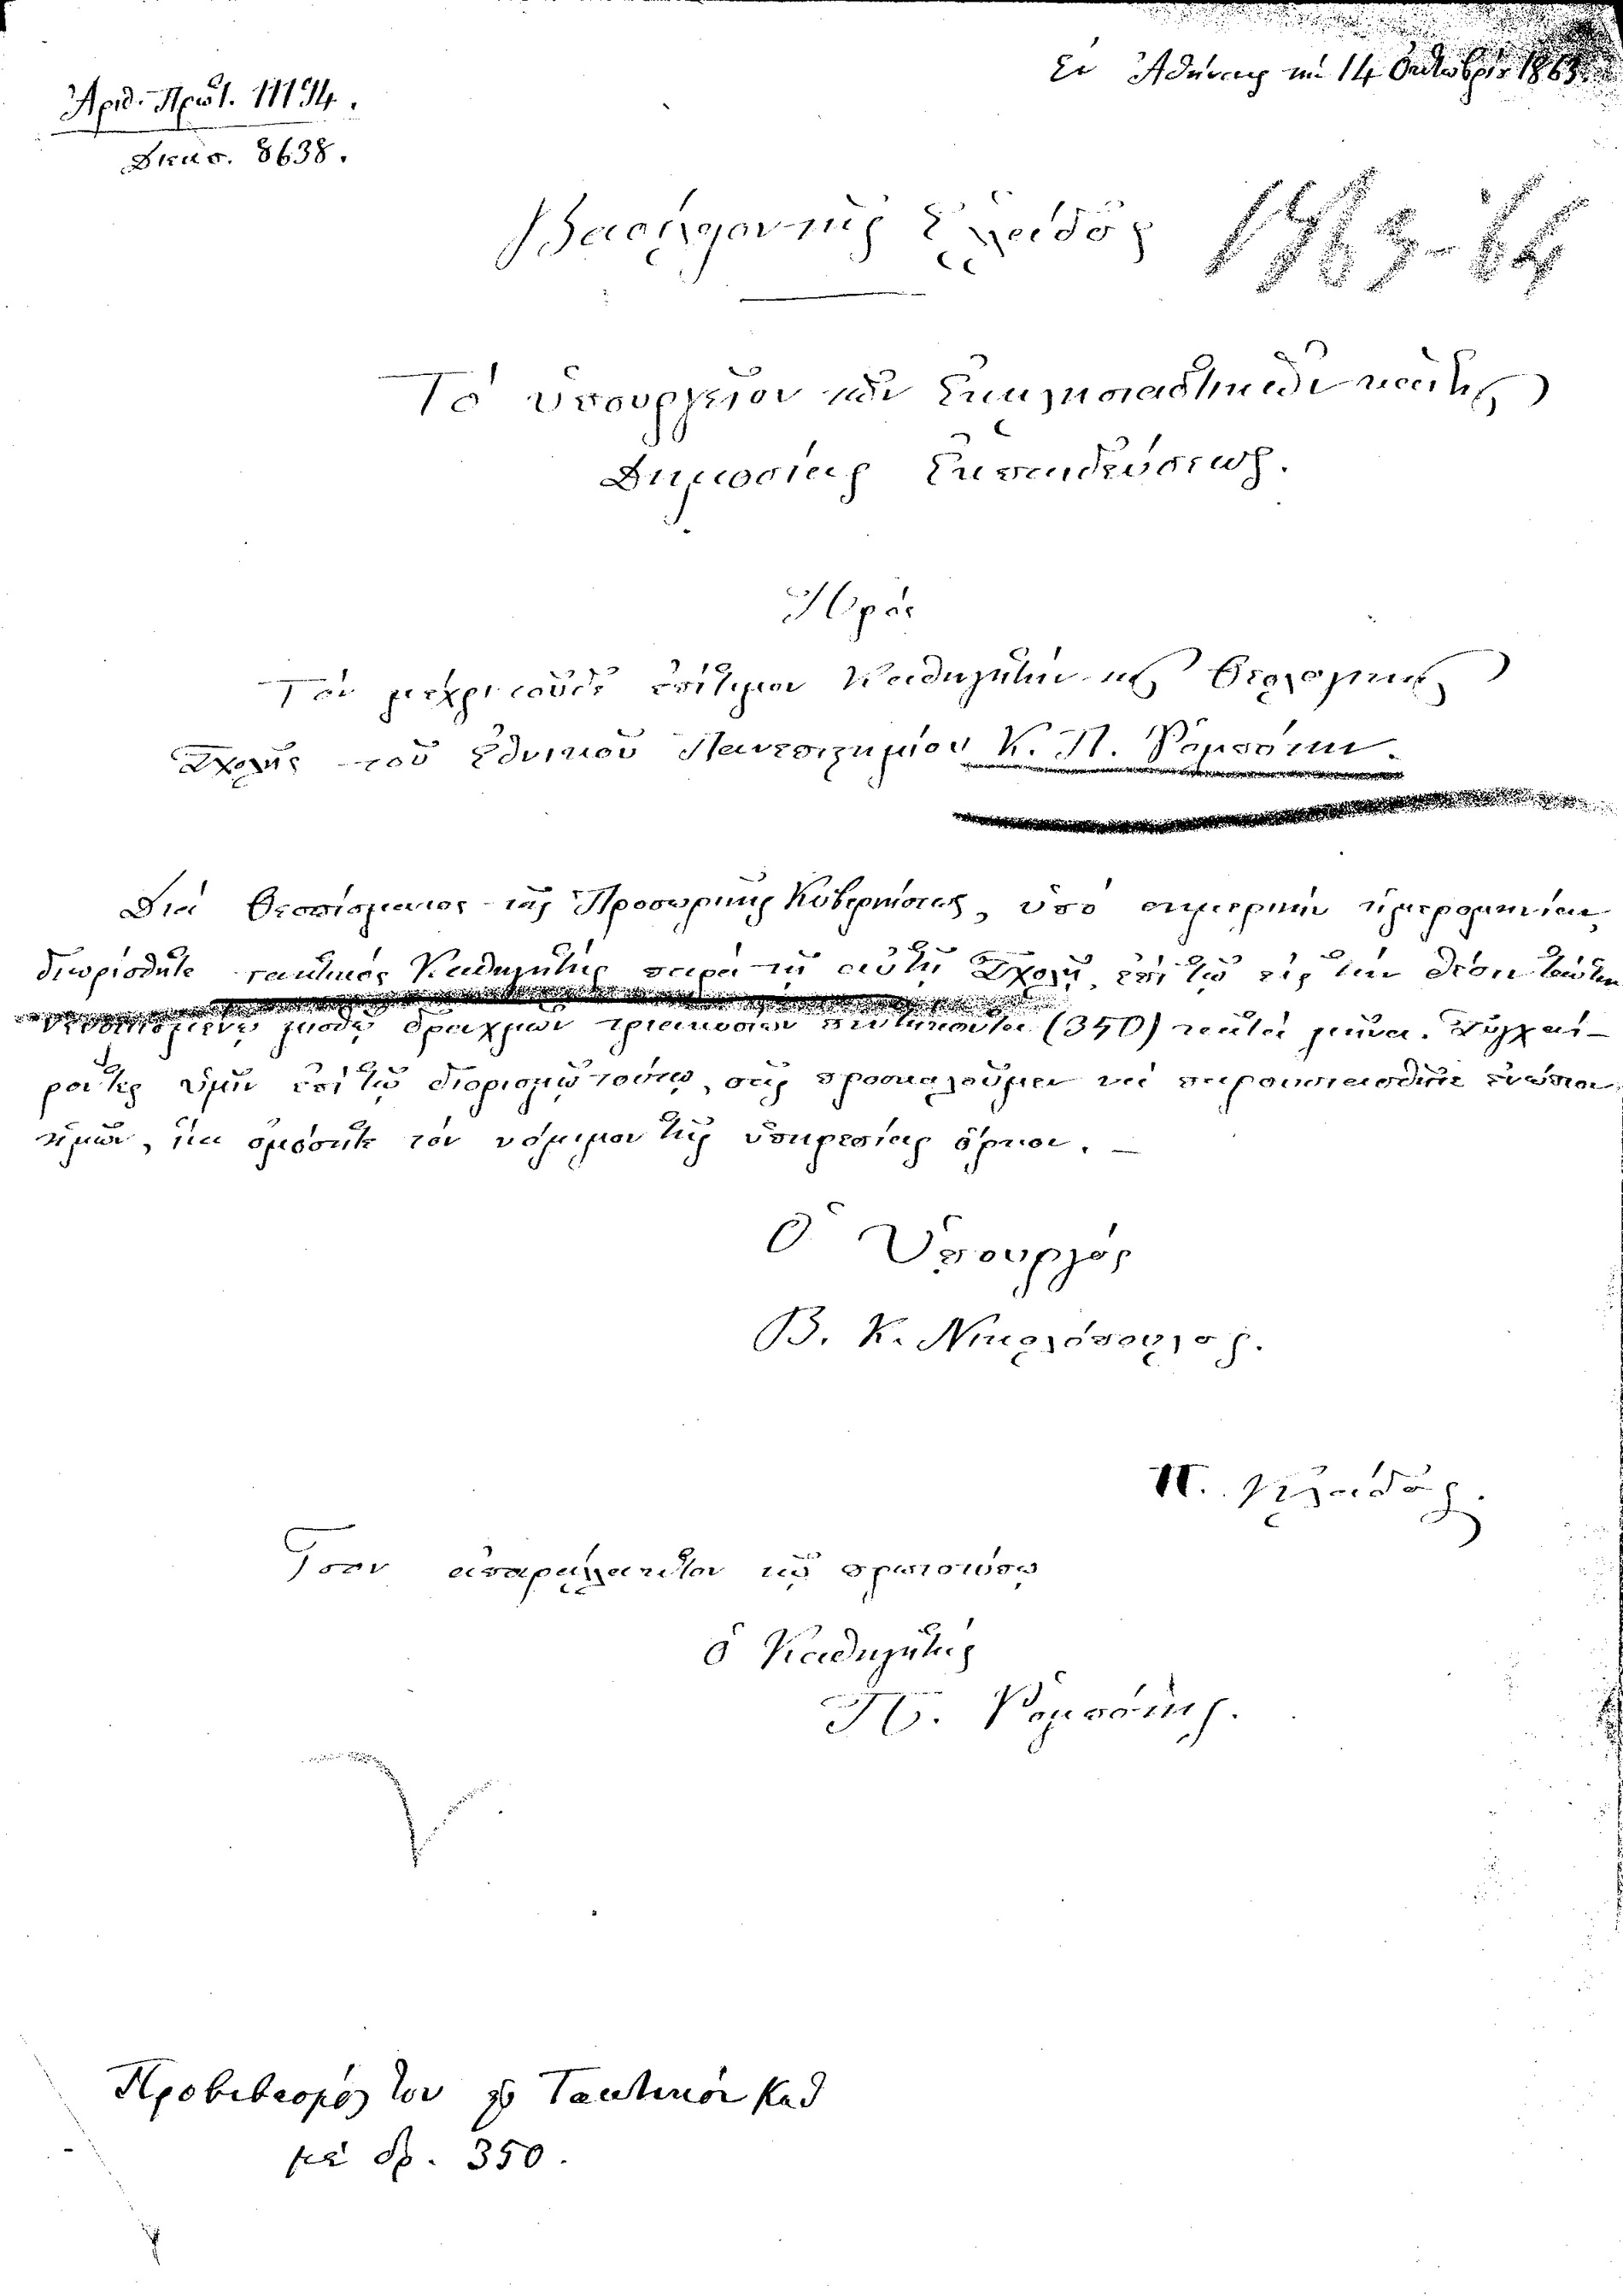 Ἐν Ἀθήναις τῇ 14 Ὀκτωβρίου 1863
Ἀριθ. Πρωτ. 11194.
Διεκπ. 8638.
Βασίλειον τῆς Ἑλλάδος
1863-64
Τὸ Ὑπουργεῖον τῶν Ἐκκλησιαστικῶν καὶ τῆς
Δημοσίας Ἐκπαιδεύσεως.
Πρὸς
Τὸν μέχρι τοῦδε ἐπίτιμον Καθηγητὴν τῆς Θεολογικῆς
Σχολῆς τοῦ Ἐθνικοῦ Πανεπιστημίου Κ. Π. Ῥομπότην.
Διὰ Θεσπίσματος τῆς Προσωρινῆς Κυβερνήσεως, ὑπὸ σημερινὴν ἡμερομηνίαν,
διωρίσθητε τακτικὸς Καθηγητὴς παρὰ τῇ αὐτῇ Σχολῇ, ἐπὶ τῷ εἰς τὴν θέσιν ταύτην
μισθῷ δραχμῶν τριακοσίων πεντήκοντα (350) κατὰ μῆνα. Συγχαί-
ροντες ὑμῖν ἐπὶ τῷ διορισμῷ τούτῳ, σᾶς προσκαλοῦμεν νὰ παρουσιασθῆτε ἐνώπιον
ἡμῶν, ἵνα ὀμόσητε τὸν νόμιμον τῆς ὑπηρεσίας ὅρκον. —
Ὁ Ὑπουργὸς
Β. Κ. Νικολόπουλος.
Π. Ἡλιάδης.
Ἴσον ἀπαράλλακτον τῷ πρωτοτύπῳ
ὁ Καθηγητὴς
Π. Ῥομπότης.
Προβιβασμός του εἰς Τακτικὸν Καθ
μὲ δρ. 350.